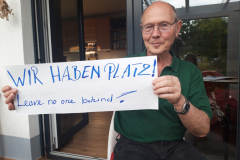 WIR HABEN PLATZ!
Leave no one behind!